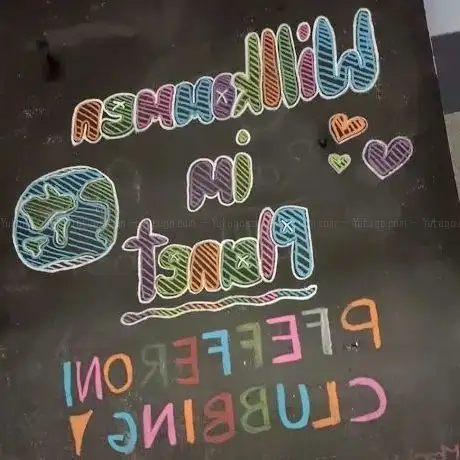 Willkommen
im
Planet
PFEFFERONI
CLUBBING!